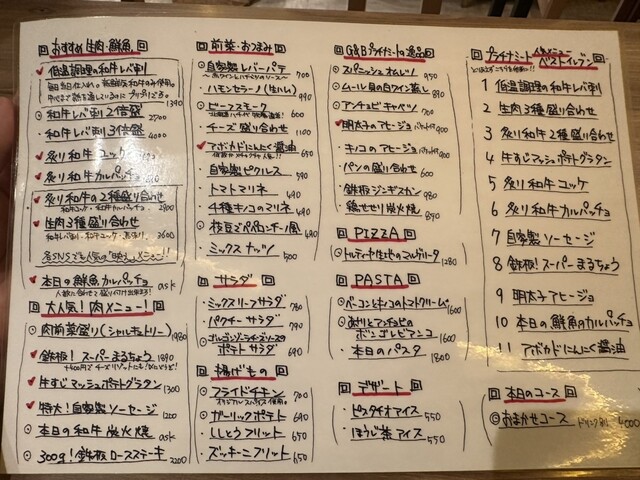 おすすめ生肉・鮮魚
低温調理の和牛レバ刺
1390
和牛レバ刺2倍盛
2700
和牛レバ刺3倍盛
4000
炙り和牛ユッケ
炙り和牛カルパッチョ
炙り和牛の2種盛り合わせ
2900
生肉3種盛り合わせ
3600
本日の鮮魚カルパッチョ
ask
大人気!肉メニュー!
肉前菜盛り(シャルキュトリー)
1980
鉄板!スーパーまるちょう
1890
牛すじマッシュポテトグラタン
1300
特大!自家製ソーセージ
1200
本日の和牛炭火焼
ask
300g!鉄板ロースステーキ
2200
前菜・おつまみ
自家製レバーパテ
700
ハモンセラーノ(生ハム)
990
ビーフスモーク
600
チーズ盛り合わせ
1100
アボカドにんにく醤油
650
自家製ピクルス
590
トマトマリネ
490
4種キノコのマリネ
490
枝豆ペペロンチーノ風
690
ミックスナッツ
500
サラダ
ミックスリーフサラダ
780
パクチーサラダ
790
ゴルゴンゾーラチーズソースの
ポテトサラダ
690
揚げもの
フライドチキン
700
ガーリックポテト
690
ししとうフリット
650
ズッキーニフリット
650
G&Bプラチナミートの逸品
スパニッシュオムレツ
950
ムール貝の白ワイン蒸し
890
アンチョビキャベツ
700
明太子のアヒージョ
900
キノコのアヒージョ
900
パンの盛り合わせ
600
鉄板ジンギスカン
980
鶏せせり炭火焼
890
PIZZA
トルティーヤ生地のマルゲリータ
1280
PASTA
ベーコンとキノコのトマトクリーム
1600
あさりとアンチョビの
ボンゴレビアンコ
1600
本日のパスタ
1800
デザート
ピスタチオアイス
550
ほうじ茶アイス
550
プラチナミート人気メニュー
ベストイレブン
1 低温調理の和牛レバ刺
2 生肉3種盛り合わせ
3 炙り和牛2種盛り合わせ
4 牛すじマッシュポテトグラタン
5 炙り和牛ユッケ
6 炙り和牛カルパッチョ
7 自家製ソーセージ
8 鉄板!スーパーまるちょう
9 明太子アヒージョ
10 本日の鮮魚のカルパッチョ
11 アボカドにんにく醤油
本日のコース
おまかせコース
ドリンク別
4000